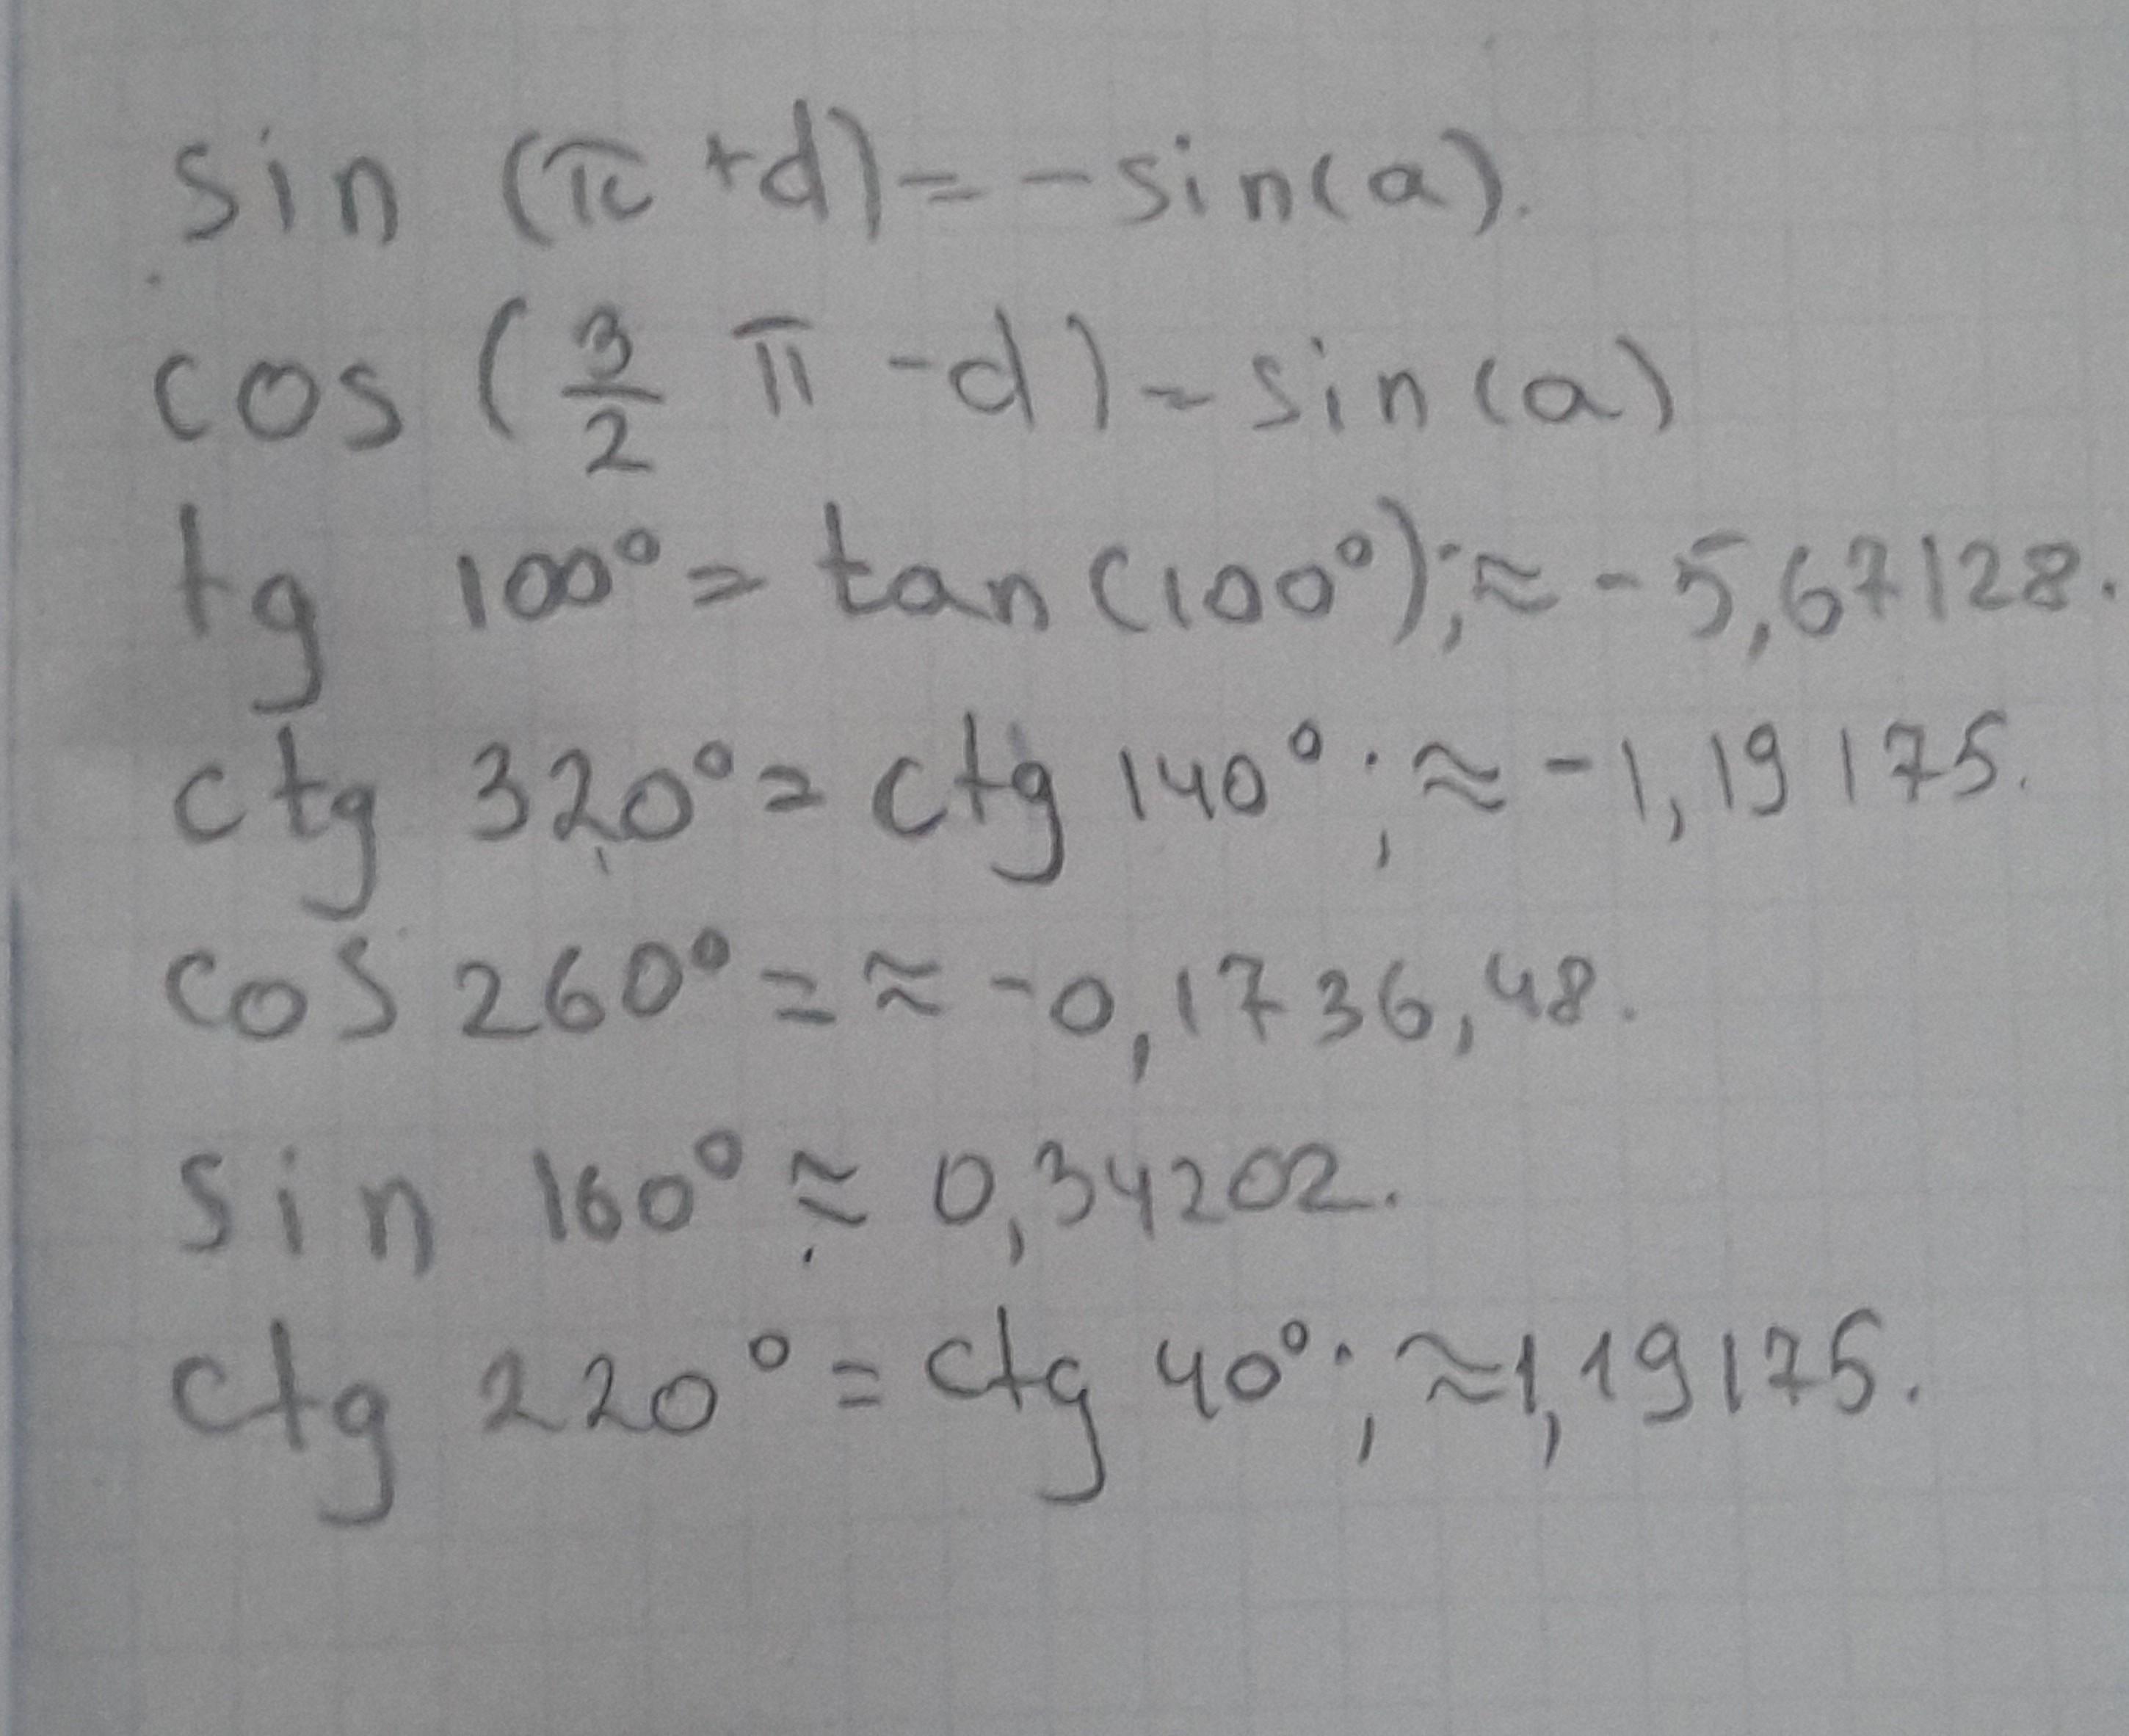 sin (π +d)=-sin(a).
cos (3/2 π -d)-sin(a)
tg 100°= tan(100°);≈-5,67128.
ctg 320°= ctg 140°;≈-1,19175.
cos 260°=≈-0,1736,48.
sin 160°≈ 0,34202.
ctg 220°= ctg 40°;≈1,19175.